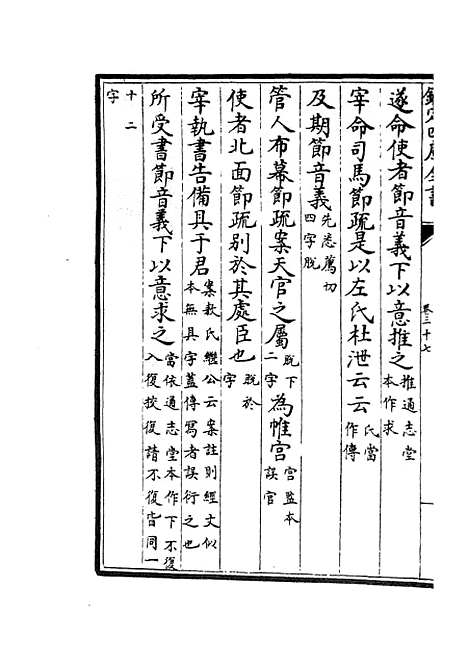 欽定四庫全書
卷三十七
遂命使者節音義下以意推之推通志堂本作求
宰命司馬節疏是以左氏杜泄云云氏當作傳
及期節音義先悉薦切四字脫
管人布幕節疏案天官之屬脫下二字為帷宮宮監本誤官
使者北面節疏别於其處臣也脫於字
宰執書告備具于君案敖氏繼公云案註則經文似本無具字蓋傳寫者誤衍之也
所受書節音義下以意求之當依通志堂本作下不復入復挍復請不復皆同一
十二字